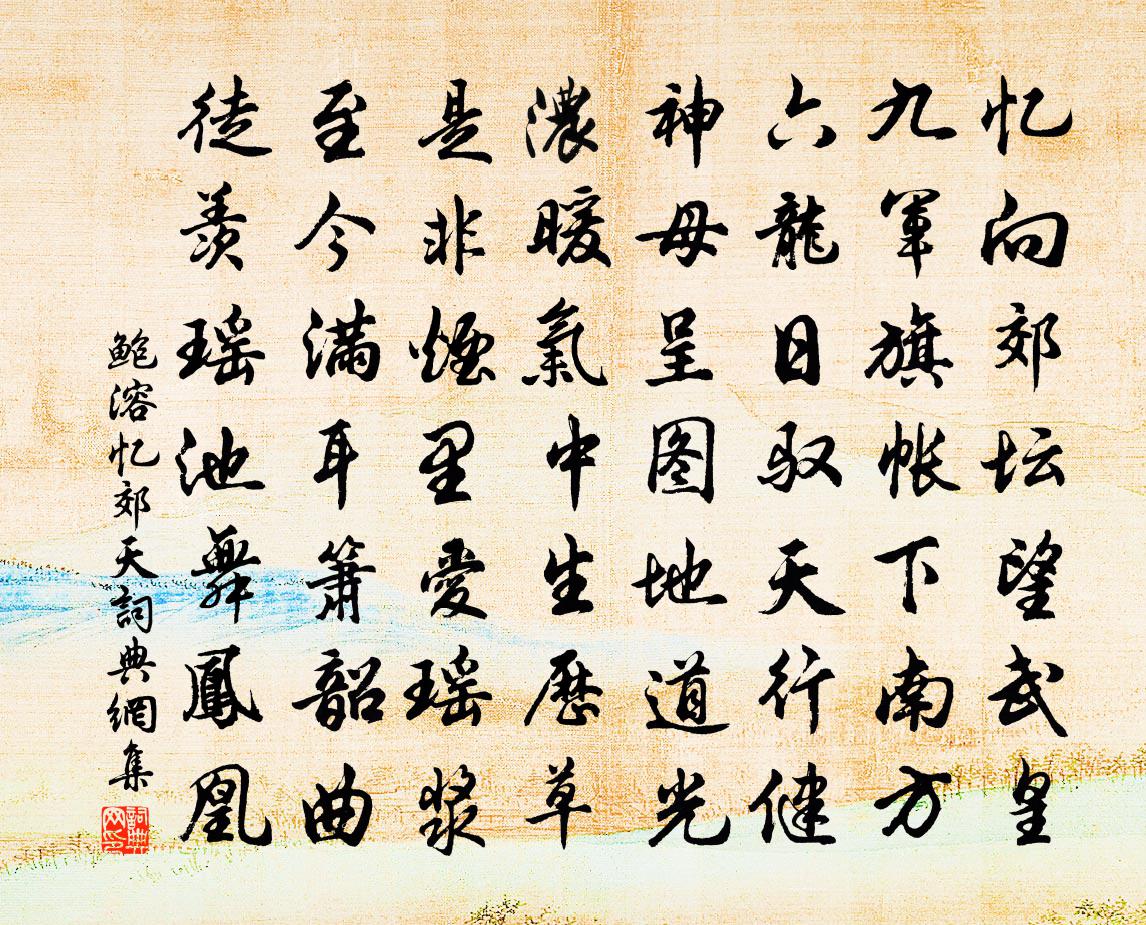 忆向郊坛望武皇
九军旗帐下南方
六龍日驭天行健
神母呈图地道光
濃暖氣中生歷草
是非煙里愛瑶漿
至今满耳箫韶曲
徒羡瑶池舞鳳凰
鲍溶忆郊天詞典網集
詞典网印